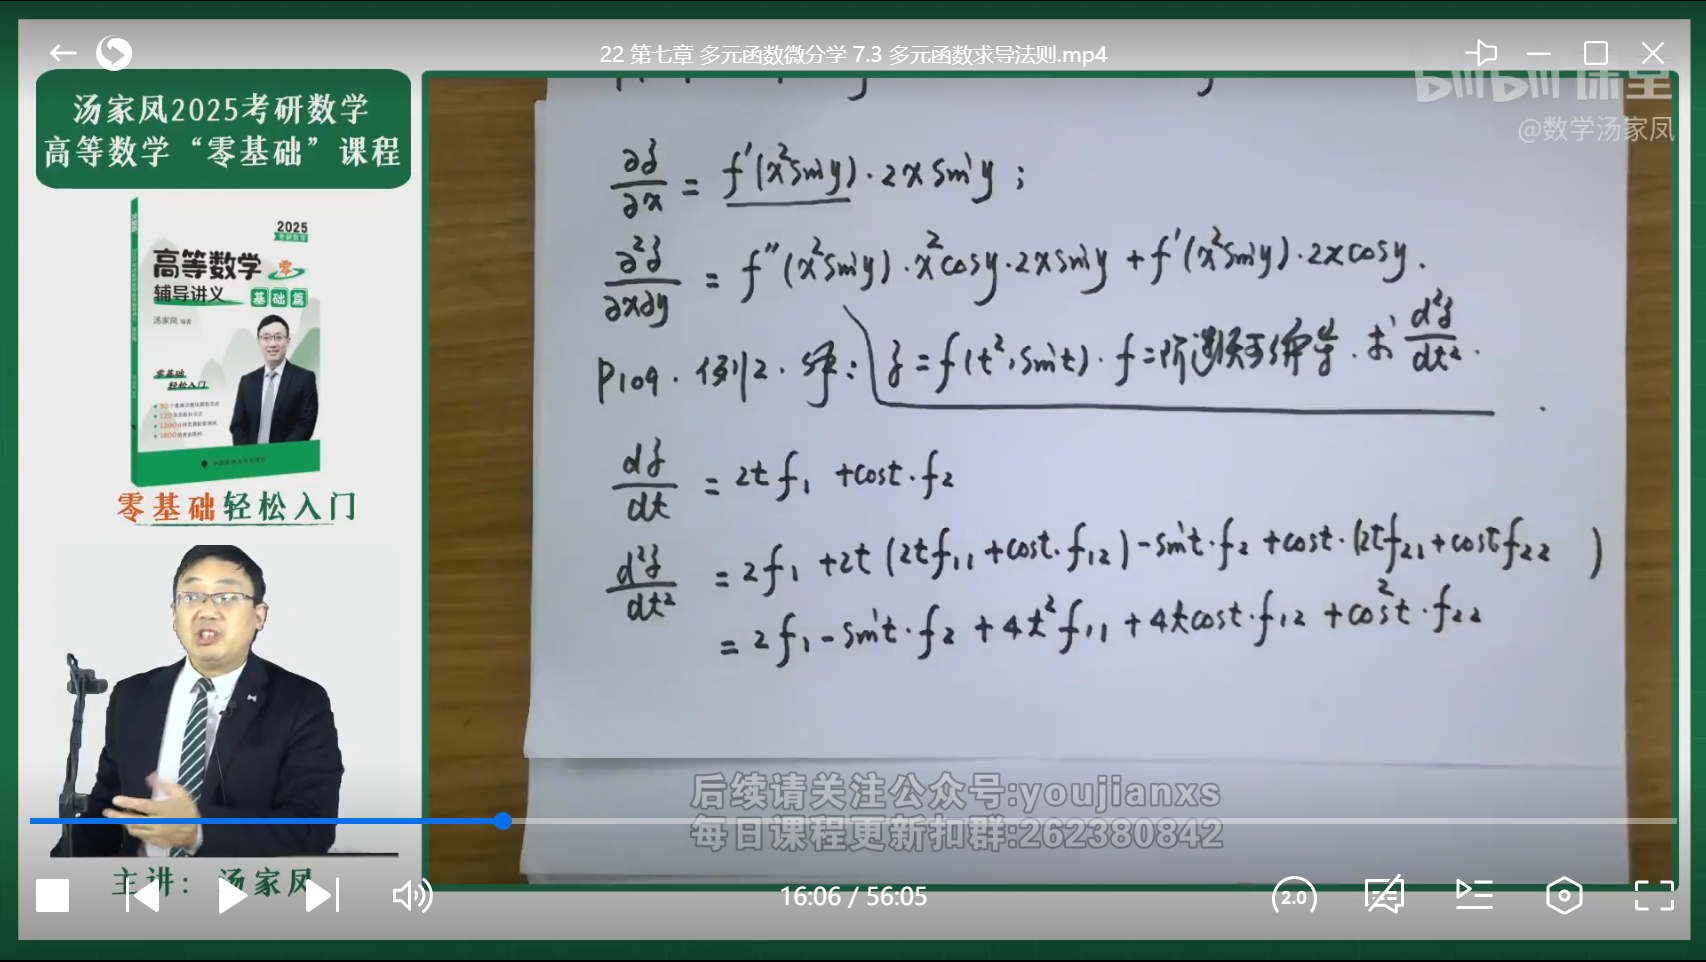 22 第七章 多元函数微分学 7.3 多元函数求导法则.mp4
bilibili 课堂
@数学汤家凤
汤家凤2025考研数学
高等数学“零基础”课程
2025
考研数学
高等数学 零
辅导讲义 基础篇
汤家凤 编著
零基础
轻松入门
零基础轻松入门
∂z/∂x = f′(x²siny)·2xsiny;
∂²z/∂x∂y = f″(x²siny)·x²cosy·2xsiny + f′(x²siny)·2xcosy.
P109. 例2. 解: z=f(t²,sint). f=阶连续可偏导. 求 d²z/dt².
dz/dt = 2tf₁ + cost·f₂
d²z/dt² = 2f₁ + 2t(2tf₁₁ + cost·f₁₂) - sint·f₂ + cost·(2tf₂₁ + costf₂₂)
= 2f₁ - sint·f₂ + 4t²f₁₁ + 4tcost·f₁₂ + cos²t·f₂₂
后续请关注公众号:youjianxs
每日课程更新扣群:262380842
主讲: 汤家凤
16:06 / 56:05
2.0